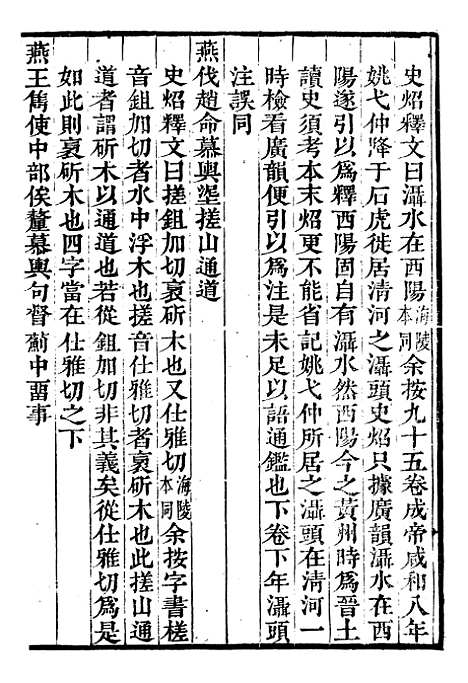 史炤釋文曰灄水在西陽海陵本同余按九十五卷成帝咸和八年
姚弋仲降于石虎徙居清河之灄頭史炤只據廣韻灄水在西
陽遂引以爲釋西陽固自有灄水然西陽今之黃州時爲晉土
讀史須考本末炤更不能省記姚弋仲所居之灄頭在清河一
時檢看廣韻便引以爲注是未足以語通鑑也下卷下年灄頭
注誤同
燕伐趙命慕輿埿搓山通道
史炤釋文曰搓鉏加切衺斫木也又仕雅切海陵本同余按字書槎
音鉏加切者水中浮木也搓音仕雅切者衺斫木也此搓山通
道者謂斫木以通道也若從鉏加切非其義矣從仕雅切爲是
如此則衺斫木也四字當在仕雅切之下
燕王雋使中部俟釐慕輿句督薊中畱事